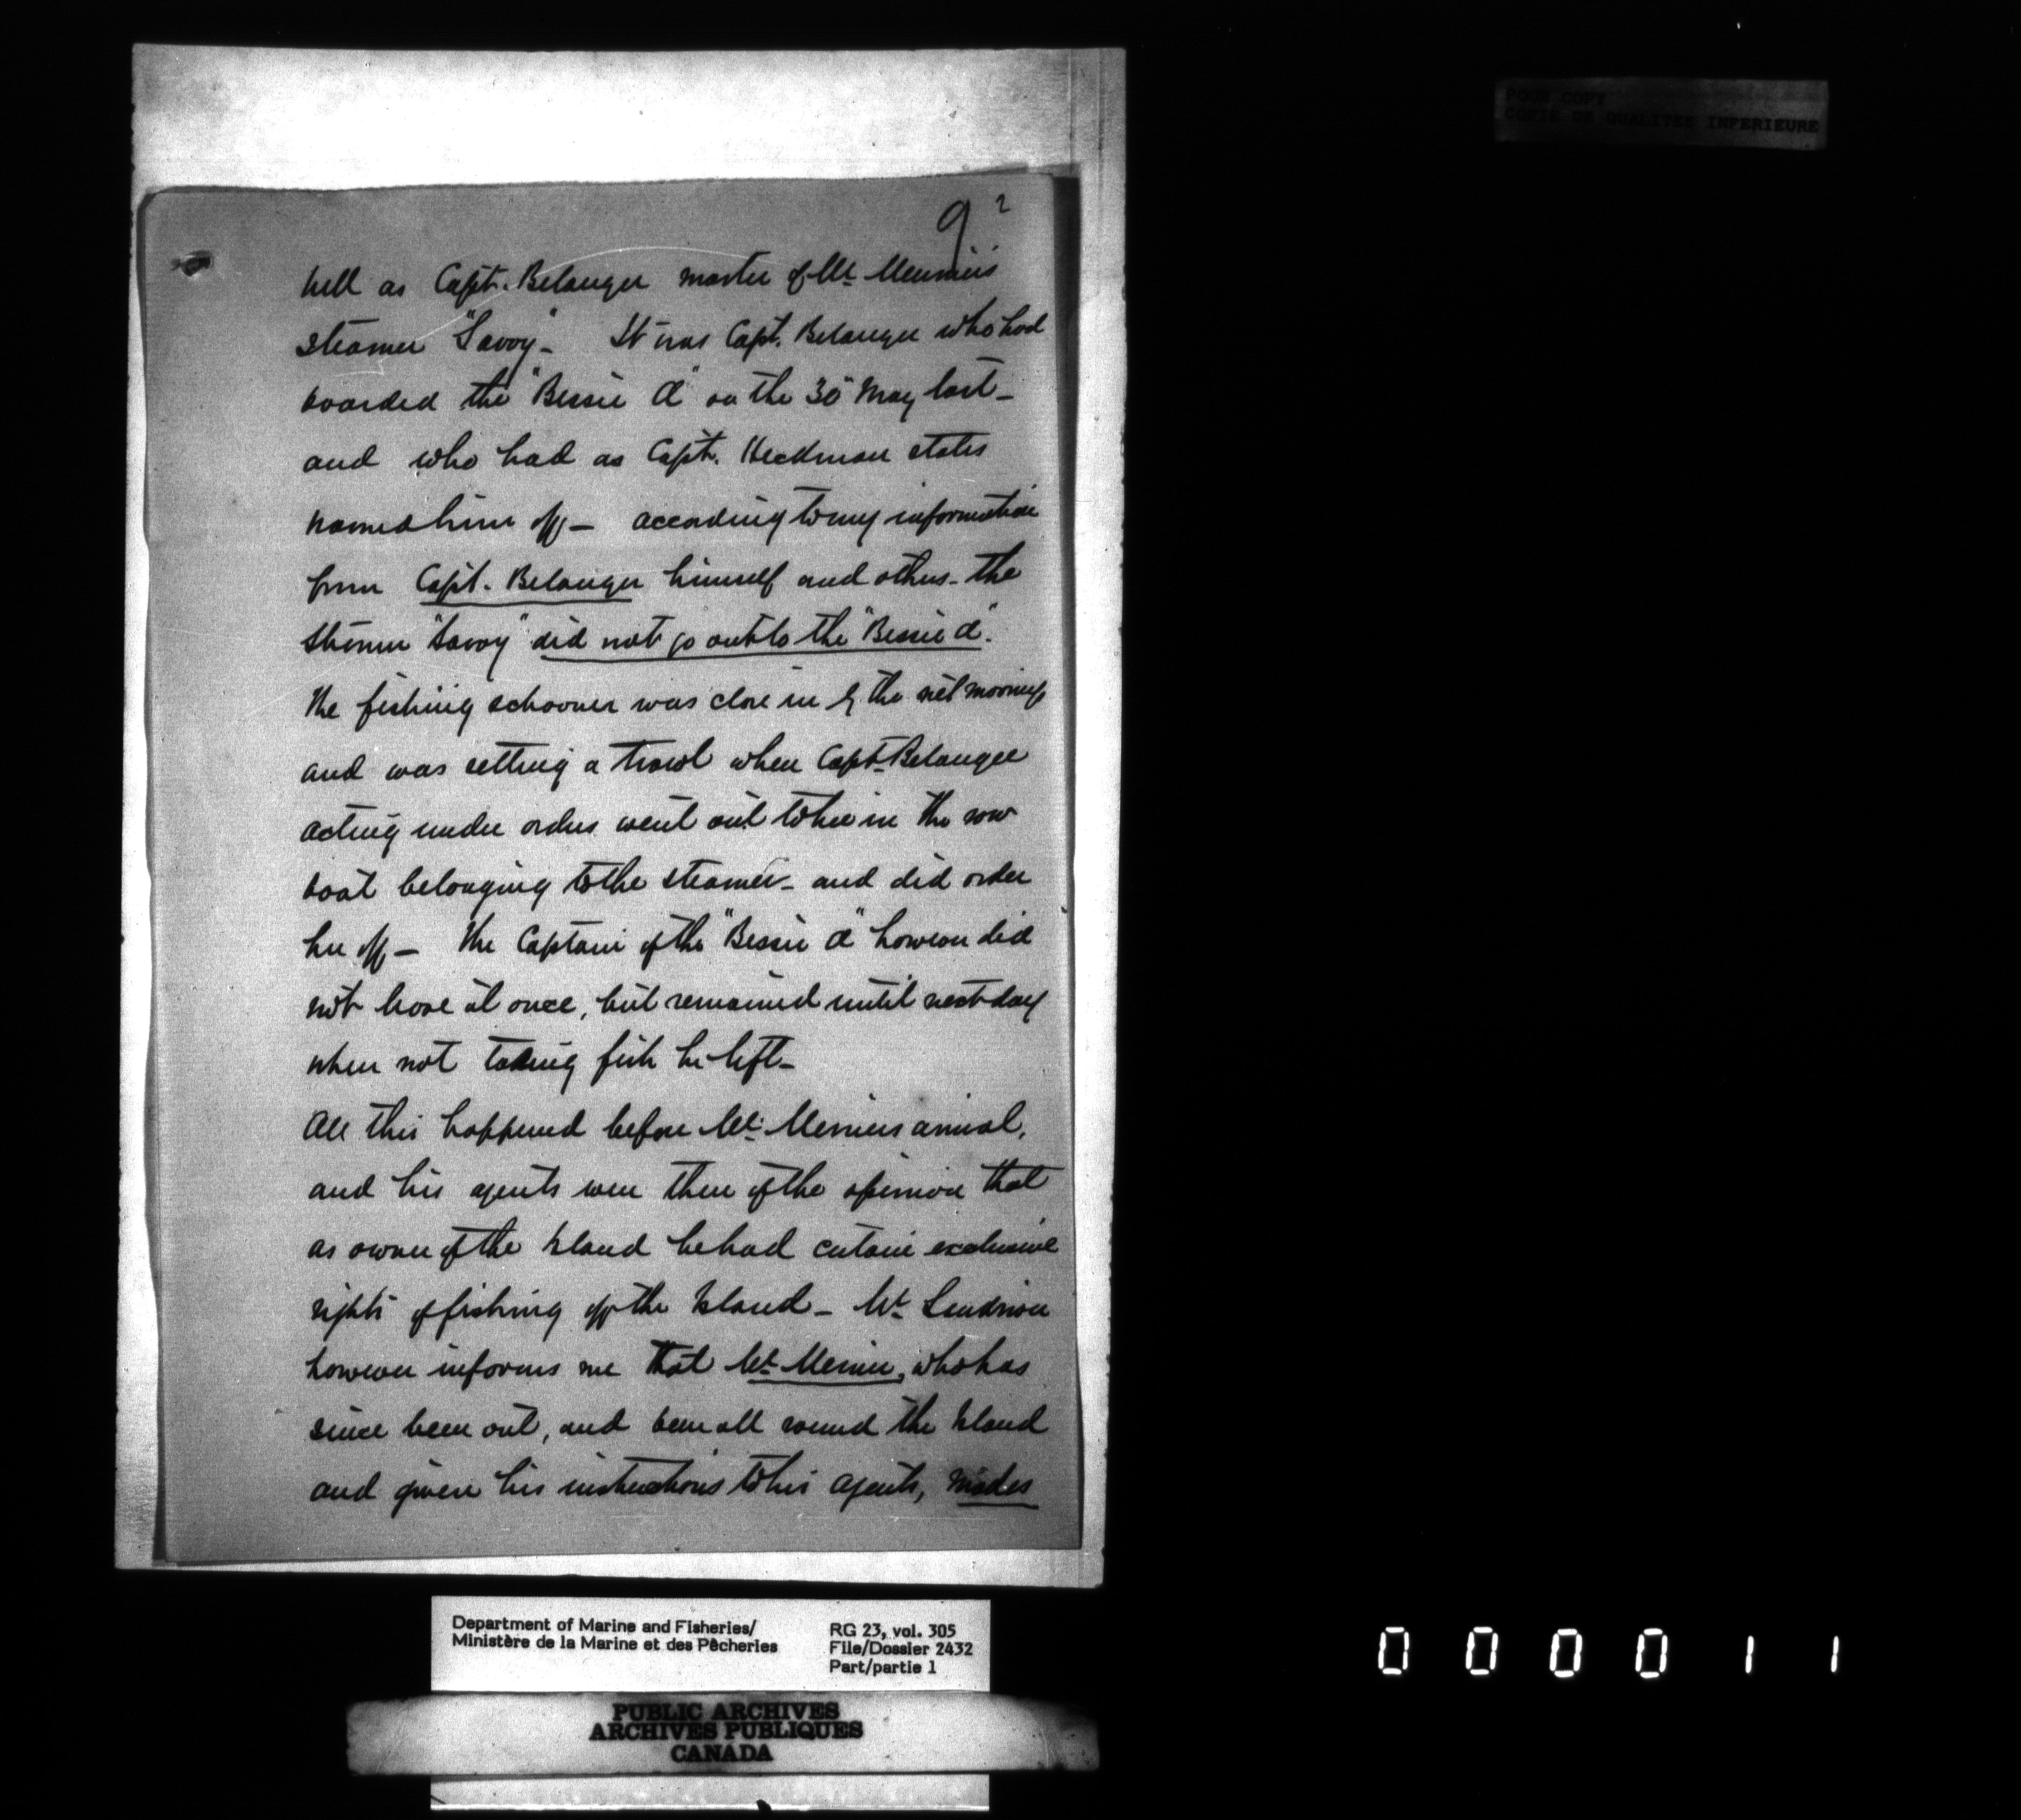 POOR COPY
COPIE DE QUALITEE INFERIEURE
9 2
well as Capt. Belanger master of Mr Meniers
steamer "Savoy" - It was Capt. Belanger who had
boarded the "Bessie A" on the 30" May last -
and who had as Capt. Heckman states
warned him off - according to my information
from Capt. Belanger himself and others - the
Steamer "Savoy" did not go out to the "Bessie A".
The fishing schooner was close in by the moorings
and was setting a trawl when Capt. Belanger
acting under orders went out to her in the row
boat belonging to the steamer - and did order
her off - The Captain of the "Bessie A" however did
not leave at once, but remained until next day
when not taking fish he left -
All this happened before Mr Meniers arrival,
and his agents were then of the opinion that
as owner of the Island he had certain exclusive
rights of fishing off the Island - Mr
however informs me that Mr Menier, who has
since been out, and been all round the Island
and given his instructions to his agents, makes
Department of Marine and Fisheries/
Ministère de la Marine et des Pêcheries
RG 23, vol. 305
File/Dossier 2432
Part/partie 1
PUBLIC ARCHIVES
ARCHIVES PUBLIQUES
CANADA
000011